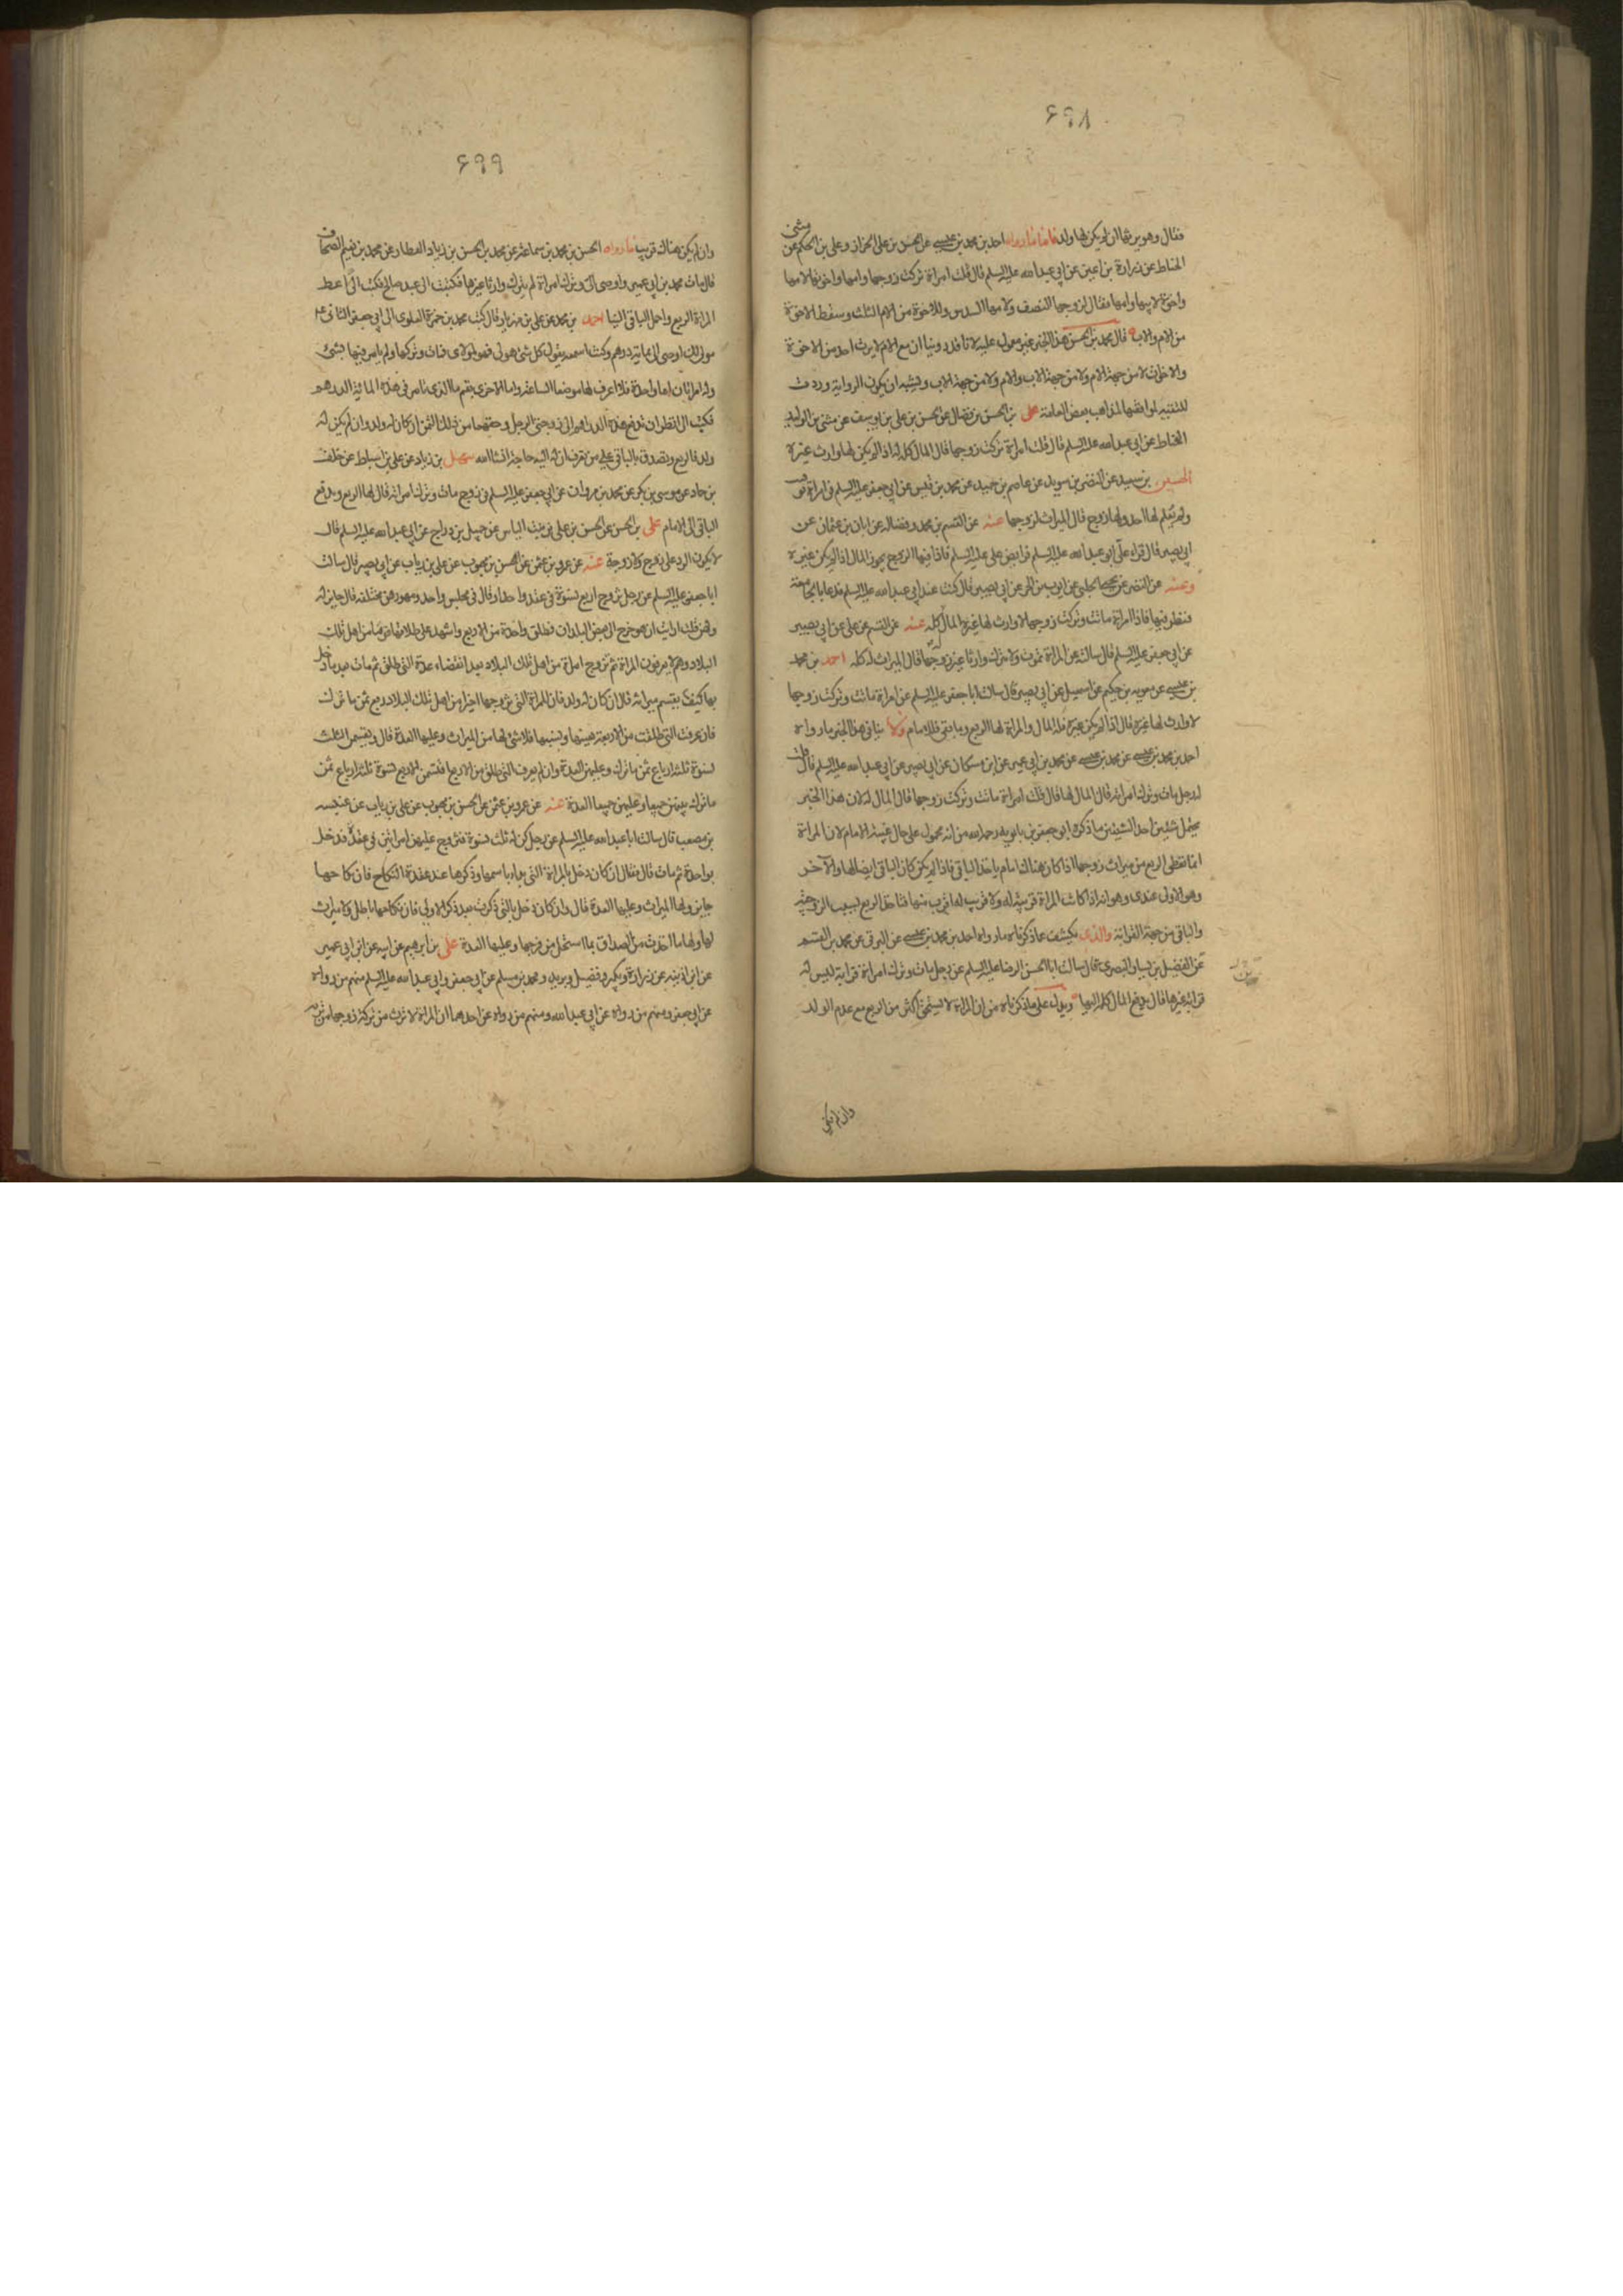 ۶۹۸
فقال وهو يرثها ان لم يكن لها ولد فاما ما رواه احمد بن محمد بن عيسى عن الحسن بن علي الخزاز وعلي بن الحكم عن مثنى
الحناط عن زرارة بن اعين عن ابي عبد الله عليه السلم قال قلت امراة تركت زوجها وامها واخوتها لامها
واخوة لابيها وامها فقال لزوجها النصف ولامها السدس وللاخوة من الام الثلث وسقط الاخوة
من الام والاب قال محمد بن الحسن هذا الخبر غير معمول عليه لانا قد روينا ان مع الام لا يرث احد من الاخوة
والاخوات لا من جهة الام ولا من جهة الاب والام ولا من جهة الاب ويشبه ان يكون الرواية وردت
للتقية لموافقتها لمذاهب بعض العامة على بن الحسن بن فضال عن الحسن بن علي بن يوسف عن مثنى بن الوليد
الحناط عن ابي عبد الله عليه السلم قال قلت امراة تركت زوجها قال المال كله له اذا لم يكن لها وارث غيره
الحسين بن سعيد عن النضر بن سويد عن عاصم بن حميد عن محمد بن قيس عن ابي جعفر عليه السلم في امراة توفيت
ولم يعلم لها احد ولها زوج قال الميراث لزوجها عنه عن القسم بن محمد وفضاله عن ابان بن عثمان عن
ابي بصير قال قراه علي ابو عبد الله عليه السلم فرايض علي عليه السلم فاذا فيها الزوج يحوز المال اذا لم يكن غيره
وعنه عن النضر عن يحيى الحلبي عن ايوب بن الحر عن ابي بصير قال كنت عند ابي عبد الله عليه السلم فدعا بالجامعة
فنظر فيها فاذا امراة ماتت وتركت زوجها لا وارث لها غيره المال له كله عنه عن القسم عن علي عن ابي بصير
عن ابي جعفر عليه السلم قال سالته عن المراة تموت ولا تترك وارثا غير زوجها قال الميراث له كله احمد بن محمد
بن عيسى عن معوية بن حكيم عن اسمعيل عن ابي بصير قال سالت ابا جعفر عليه السلم عن امراة ماتت وتركت زوجها
لا وارث لها غيره قال اذا لم يكن غيره فله المال والمراة لها الربع وما بقي فللامام ولا ينافي هذا الخبر ما رواه
احمد بن محمد بن عيسى عن محمد بن عيسى عن محمد بن ابي عمير عن ابن مسكان عن ابي بصير عن ابي عبد الله عليه السلم قال قلت
له رجل مات وترك امراته قال المال لها قال قلت امراة ماتت وتركت زوجها قال المال له لان هذا الخبر
يحتمل شيئين احد الشيئين ما ذكره ابو جعفر بن بابويه رحمه الله من انه محمول على حال غيبة الامام لان المراة
انما تعطى الربع من ميراث زوجها اذا كان هناك امام ياخذ الباقي فاذا لم يكن كان الباقي ايضا لها والآخر
وهو الاولى عندي وهو انه اذا كانت المراة قريبة له ولا قريب له اقرب منها فتاخذ الربع بسبب الزوجية
والباقي من جهة القرابة والذي يكشف عما ذكرناه ما رواه احمد بن محمد بن عيسى عن البرقي عن محمد بن القسم
عن الفضيل بن يسار البصري قال سالت ابا الحسن الرضا عليه السلم عن رجل مات وترك امراة قرابة ليس له
قرابة غيرها قال يدفع المال كله اليها ويدل على ما ذكرناه من ان المراة لا يستحق اكثر من الربع مع عدم الولد
وان لم يكن
۶۹۹
وان لم يكن هناك قريب ما رواه الحسن بن محمد بن سماعة عن محمد بن الحسن بن زياد العطار عن محمد بن نعيم الصحاف
قال مات محمد بن ابي عمير واوصى الي وترك امراة لم يترك وارثا غيرها فكتبت الى عبد صالح فكتب الي اعط
المراة الربع واحمل الباقي الينا احمد بن محمد عن علي بن مهزيار قال كتب محمد بن حمزة العلوي الى ابي جعفر الثاني ع
مولى لك اوصى الي بماية درهم وكنت اسمعه يقول كل شئ هو لي فهو لمولاي فمات وتركها ولم يامر فيها بشئ
وله امراتان اما واحدة فلا اعرف لها موضعا الساعة واما الاخرى بقم ما الذي تامر في هذه الماية الدرهم
فكتب الي انظر ان تدفع هذه الدراهم الى زوجتي الرجل وحقهما من ذلك الثمن ان كان له ولد وان لم يكن له
ولد فالربع وتصدق بالباقي على من تعرف ان له اليه حاجة انشا الله سهل بن زياد عن علي بن اسباط عن خلف
بن حماد عن موسى بن بكر عن محمد بن مروان عن ابي جعفر عليه السلم في زوج مات وترك امراته قال لها الربع ويدفع
الباقي الى الامام على بن الحسن عن الحسن بن علي بن بنت الياس عن جميل بن دراج عن ابي عبد الله عليه السلم قال
لا يكون الرد على زوج ولا زوجة عنه عن عمرو بن عثمن عن الحسن بن محبوب عن علي بن رياب عن ابي بصير قال سالت
ابا جعفر عليه السلم عن رجل تزوج اربع نسوة في عقد واحد او قال في مجلس واحد ومهورهن مختلفة قال جايز له
ولهن قلت ارايت ان هو خرج الى بعض البلدان فطلق واحدة من الاربع واشهد على طلاقها قوما من اهل تلك
البلاد وهم لا يعرفون المراة ثم تزوج امراة من اهل تلك البلاد بعد انقضاء عدة التي طلق ثم مات بعد ما دخل
بها كيف يقسم ميراثه قال ان كان له ولد فان للمراة التي تزوجها اخيرا من اهل تلك البلاد ربع ثمن ما ترك
فان عرفت التي طلقت من الاربعة بعينها ونسبها فلا شئ لها من الميراث وعليها العدة قال ويقسمن الثلث
نسوة ثلثة ارباع ثمن ما ترك وعليهن العدة وان لم يعرف التي طلق من الاربع اقتسمن الاربع نسوة ثلثة ارباع ثمن
ما ترك بينهن جميعا وعليهن جميعا العدة عنه عن عمرو بن عثمن عن الحسن بن محبوب عن علي بن رياب عن عنبسه
بن مصعب قال سالت ابا عبد الله عليه السلم عن رجل كن له ثلث نسوة فتزوج عليهن امراتين في عقد فدخل
بواحدة ثم مات قال فقال ان كان دخل بالمراة التي بدا باسمها وذكرها عند عقدة النكاح فان نكاحها
جايز ولها الميراث وعليها العدة قال وان كان دخل بالتي ذكرت بعد ذكر الاولى فان نكاحها باطل ولا ميراث
لها ولها ما اخذت من الصداق بما استحل من فرجها وعليها العدة على بن ابرهيم عن ابيه عن ابن ابي عمير
عن ابن اذينه عن زرارة وبكير وفضيل وبريد ومحمد بن مسلم عن ابي جعفر وابي عبد الله عليه السلم منهم من رواه
عن ابي جعفر ومنهم من رواه عن ابي عبد الله ومنهم من رواه عن احدهما ان المراة لا ترث من تركة زوجها من تربة